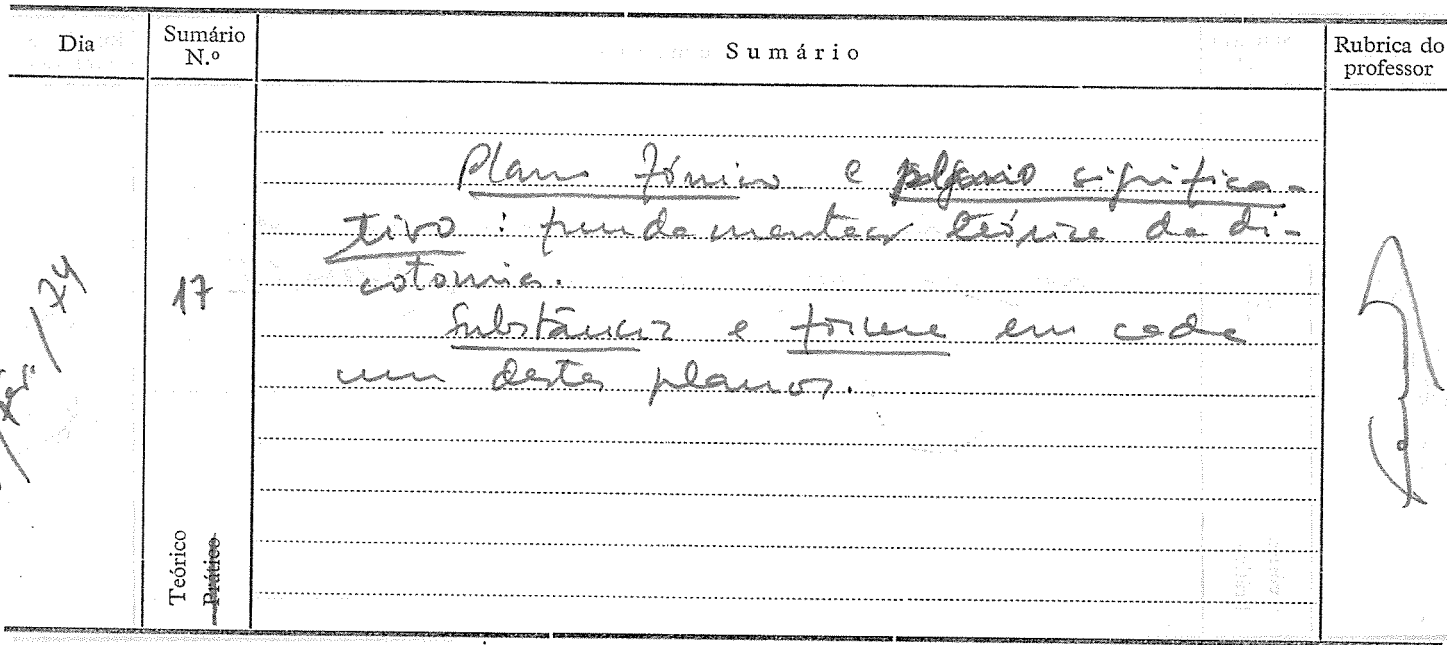 Dia
Sumário N.º
Sumário
Rubrica do professor
/74
17
Plano fónico e plano significa-
tivo : fundamentação teórica da di-
cotomia.
Substância e forma em cada
um destes planos.
Teórico
Prático